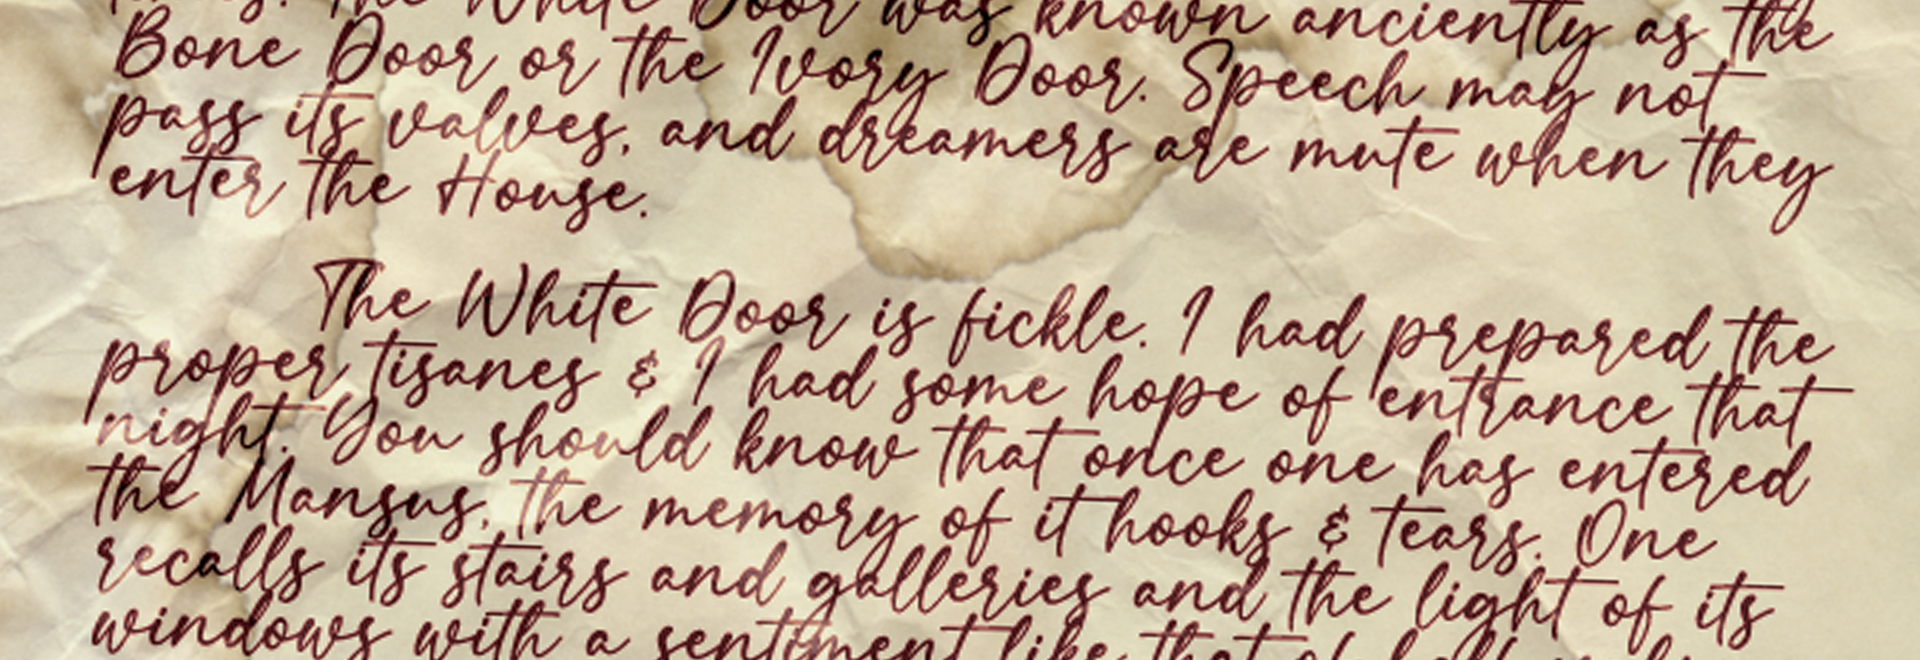 The White Door was known anciently as the
Bone Door or the Ivory Door. Speech may not
pass its valves, and dreamers are mute when they
enter the House.
The White Door is fickle. I had prepared the
proper tisanes & I had some hope of entrance that
night. You should know that once one has entered
the Mansus, the memory of it hooks & tears. One
recalls its stairs and galleries and the light of its
windows with a sentiment like that of